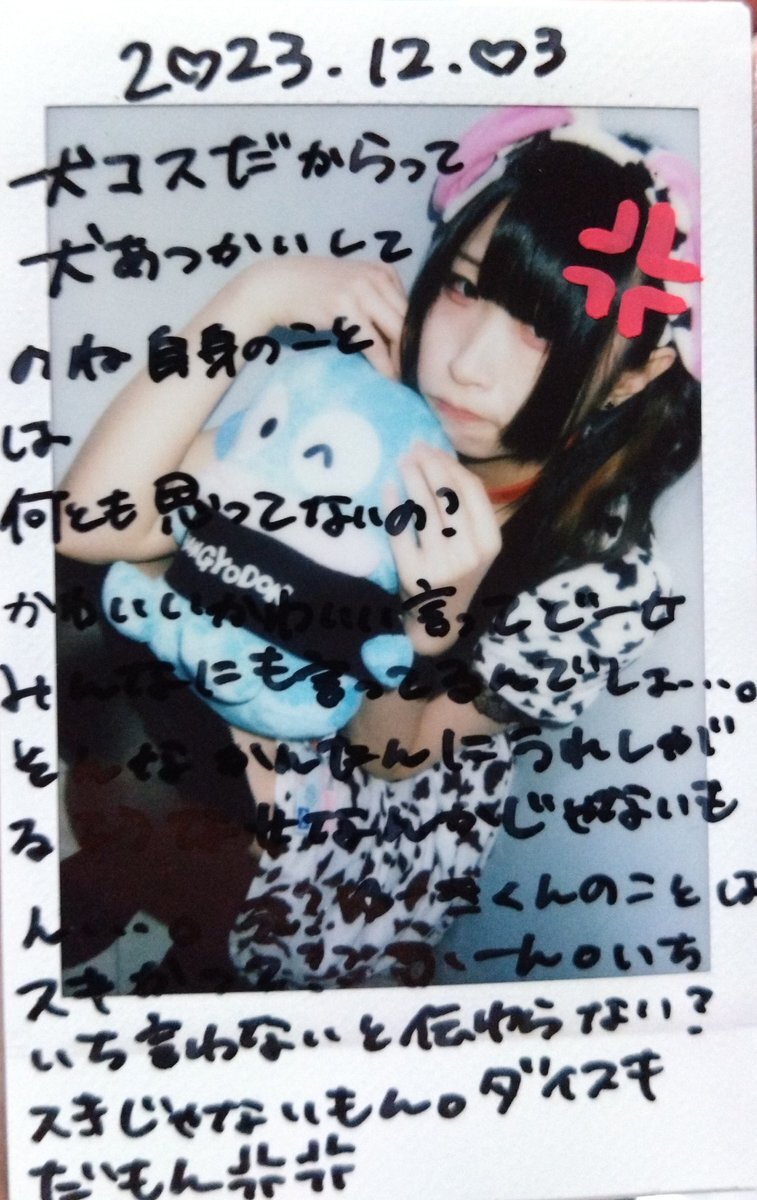 2♡23.12.♡3
犬コスだからって
犬あつかいして
のね自身のこと
は
何とも思ってないの?
かわいいかわいい言ってどーせ
みんなにも言ってるんでしょ…。
そんなかんたんにうれしがじ
る 女なんかじゃないも
ん…。 くんのことは
スキ ん。いち
いち言わないと伝わらない?
スキじゃないもん。ダイスキ
だもん
NGYODON